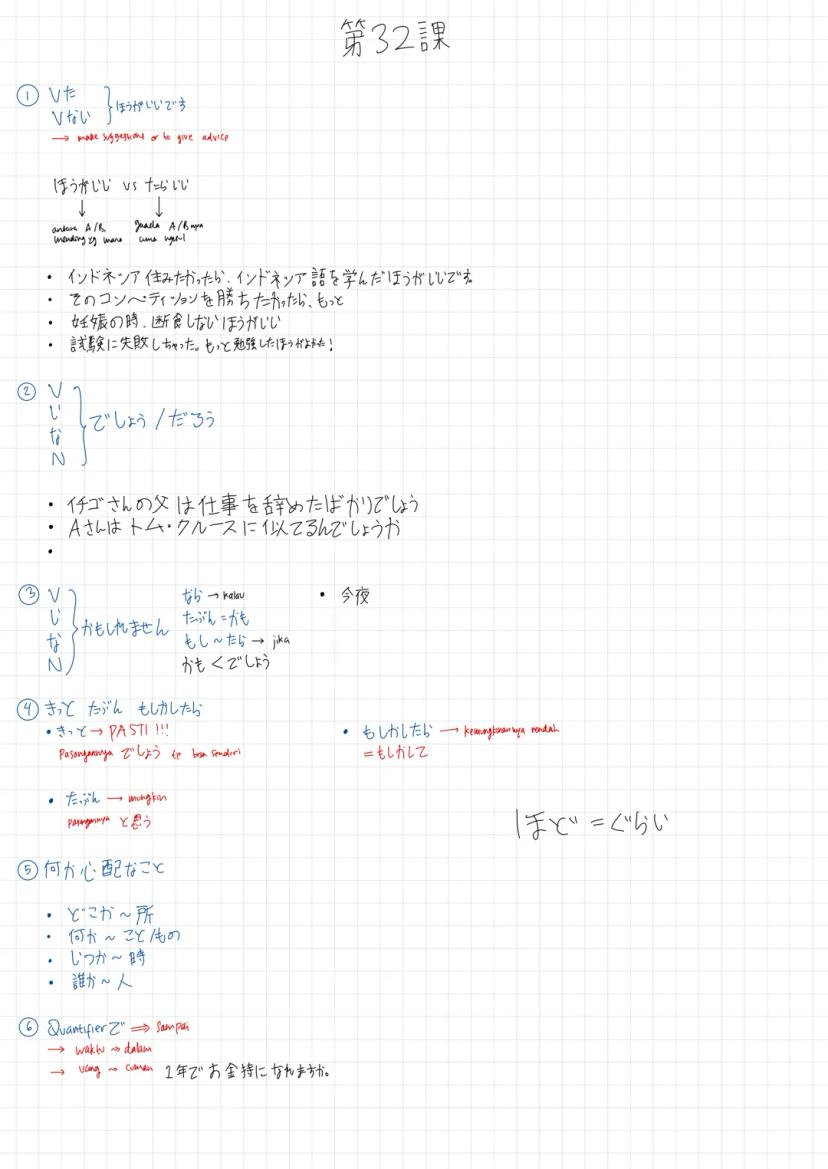 第32課
① Vた
Vない } ほうがいいです
→ make suggestions or to give advice
ほうがいい vs たらいい
↓ ↓
antara A/B, gaada A/B nya
mending yg mana cuma ngasi
• インドネシア住みたかったら、インドネシア語を学んだほうがいいです。
• そのコンペティションを勝ちたかったら、もっと
• 妊娠の時、断食しないほうがいい
• 試験に失敗しちゃった。もっと勉強したほうがよかた!
② V
い
な
N } でしょう/だろう
• イチゴさんの父は仕事を辞めたばかりでしょう
• Aさんはトム・クルースに似てるんでしょうか
•
③ V
い
な
N } かもしれません
なら → kalau
たぶん = かも
もし〜たら → jika
かも < でしょう
• 今夜
④ きっと たぶん もしかしたら
• きっと → PASTI!!!
Pasangannya でしょう tp bisa sendiri
• もしかしたら → kemungkinannya rendah
= もしかして
• たぶん → mungkin
pasangannya と思う
ほど = ぐらい
⑤ 何か心配なこと
• どこか〜所
• 何か〜こと/もの
• いつか〜時
• 誰か〜人
⑥ Quantifierで ⇒ Sampai
→ waktu ~> dalam
→ uang ~> cuman 1年でお金持になれますか。